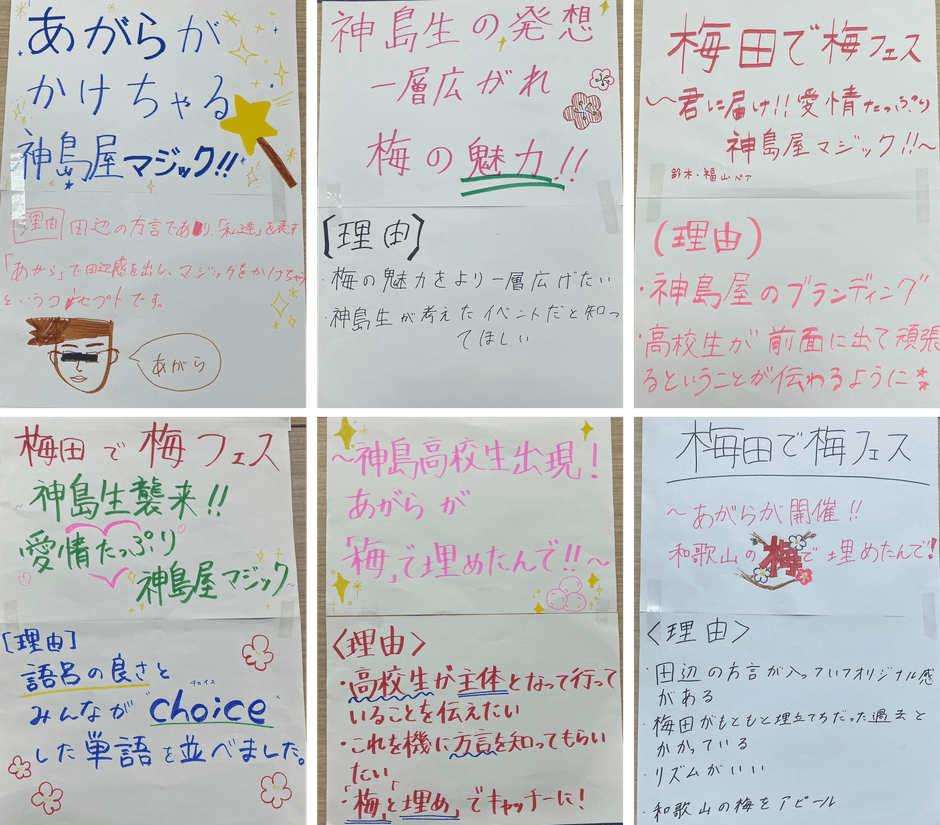 あがらが
かけちゃる
神島屋マジック!!
理由 田辺の方言であり、「私達」を表す
「あがら」で田辺感を出し、マジックをかけちゃう
というコンセプトです。
あがら
神島生の発想
一層広がれ
梅の魅力!!
[理由]
・梅の魅力をより一層広げたい
・神島生が考えたイベントだと知っ
てほしい
梅田で梅フェス
〜君に届け!!愛情たっぷり
神島屋マジック!!〜
鈴木・福山ペア
(理由)
・神島屋のブランディング
・高校生が前面に出て頑張
るということが伝わるように!!
梅田で梅フェス
〜神島生襲来!!
愛情たっぷり
神島屋マジック〜
[理由]
語呂の良さと
みんなが“choice”
チョイス
した単語を並べました。
〜神島高校生出現!
あがらが
「梅」で埋めたんで!!〜
<理由>
・高校生が主体となって行って
いることを伝えたい
・これを機に方言を知ってもらい
たい
・「梅」と「埋め」でキャッチーに!
梅田で梅フェス
〜あがらが開催!!
和歌山の梅で埋めたんで!
<理由>
・田辺の方言が入っていてオリジナル感
がある
・梅田がもともと埋立ちだった過去と
かかっている
・リズムがいい
・和歌山の梅をアピール